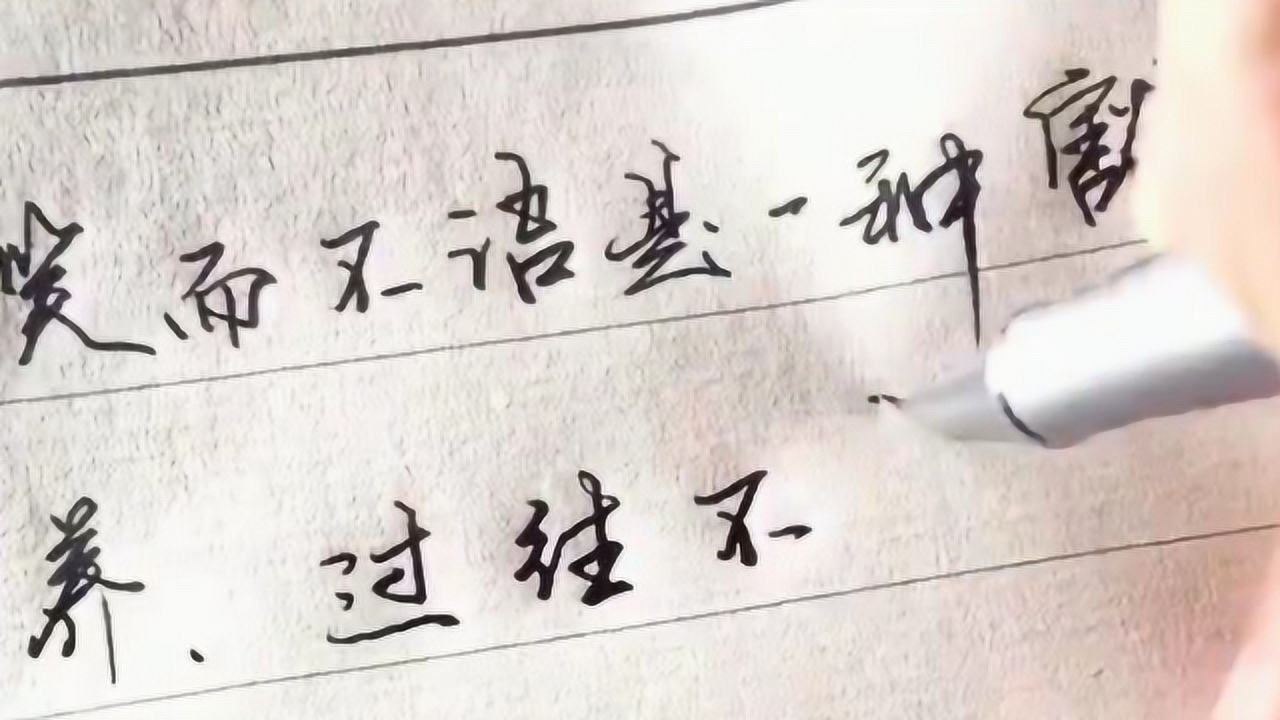 笑而不语是一种
养、过往不